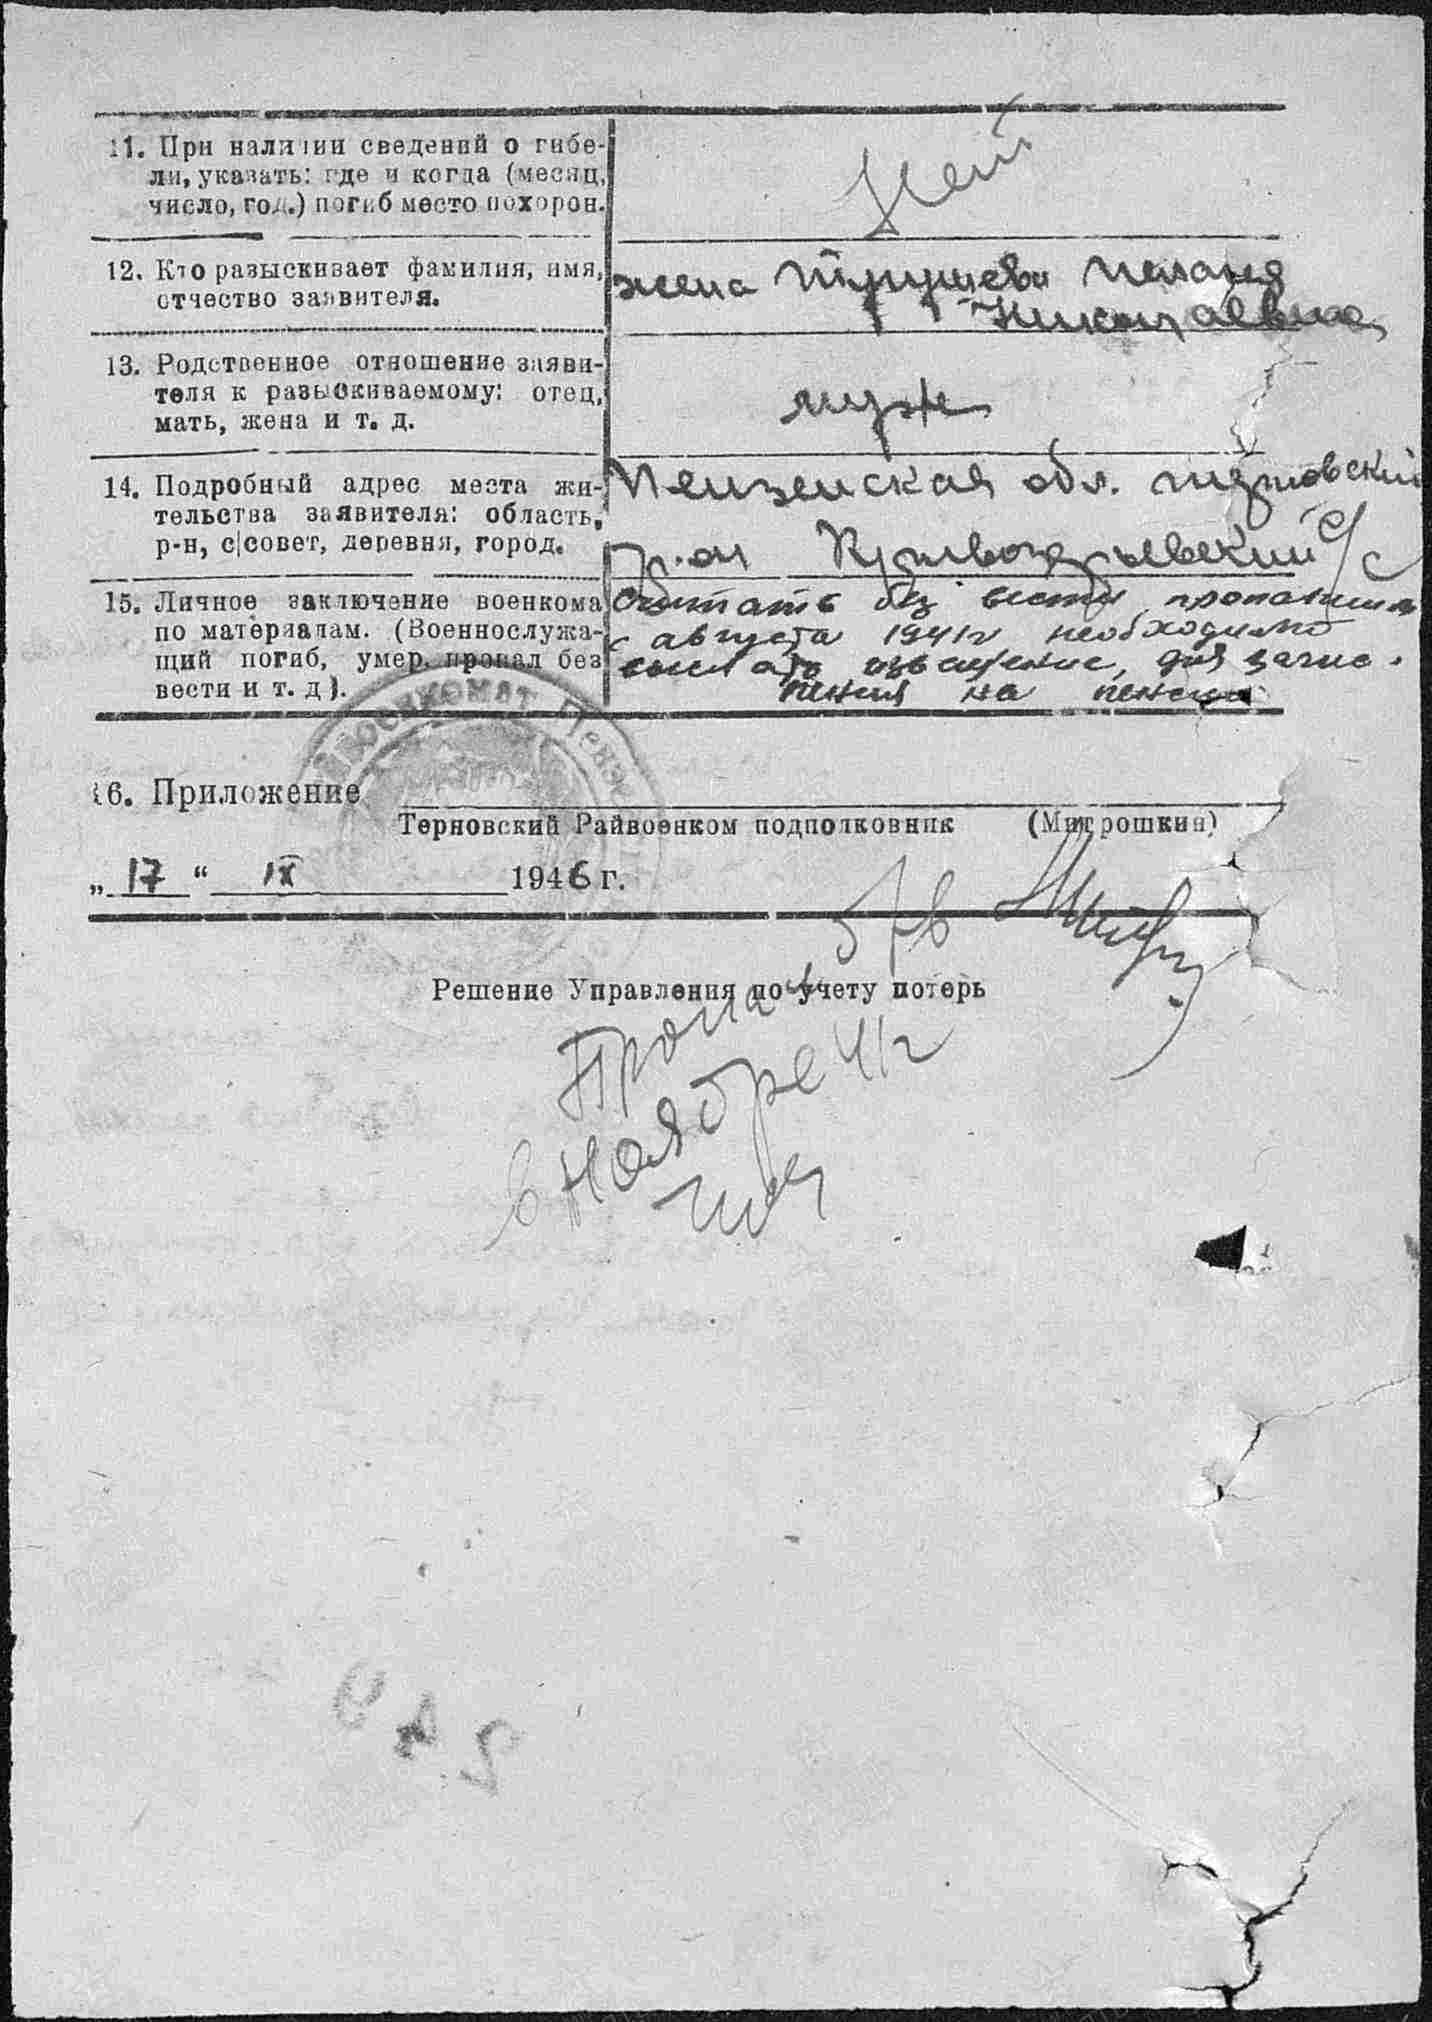 11. При наличии сведений о гибе-
ли, указать: где и когда (месяц,
число, год.) погиб место похорон.
Нет
12. Кто разыскивает фамилия, имя,
отчество заявителя.
жена
Николаевна
13. Родственное отношение заяви-
теля к разыскиваемому: отец,
мать, жена и т. д.
муж
14. Подробный адрес места жи-
тельства заявителя: область,
р-н, с|совет, деревня, город.
Пензенская обл.
р.он с/с
15. Личное заключение военкома
по материалам. (Военнослужа-
щий погиб, умер, пропал без
вести и т. д).
Считать без вести пропавшим
с августа 1941г необходимо
выслать извещение, для зачис-
ления на пенсию
Военкомат Пенз
16. Приложение
Терновский Райвоенком подполковник (Митрошкин)
„17“ IX 1946 г.
Решение Управления по учету потерь
Пропал
в ноябре 41г